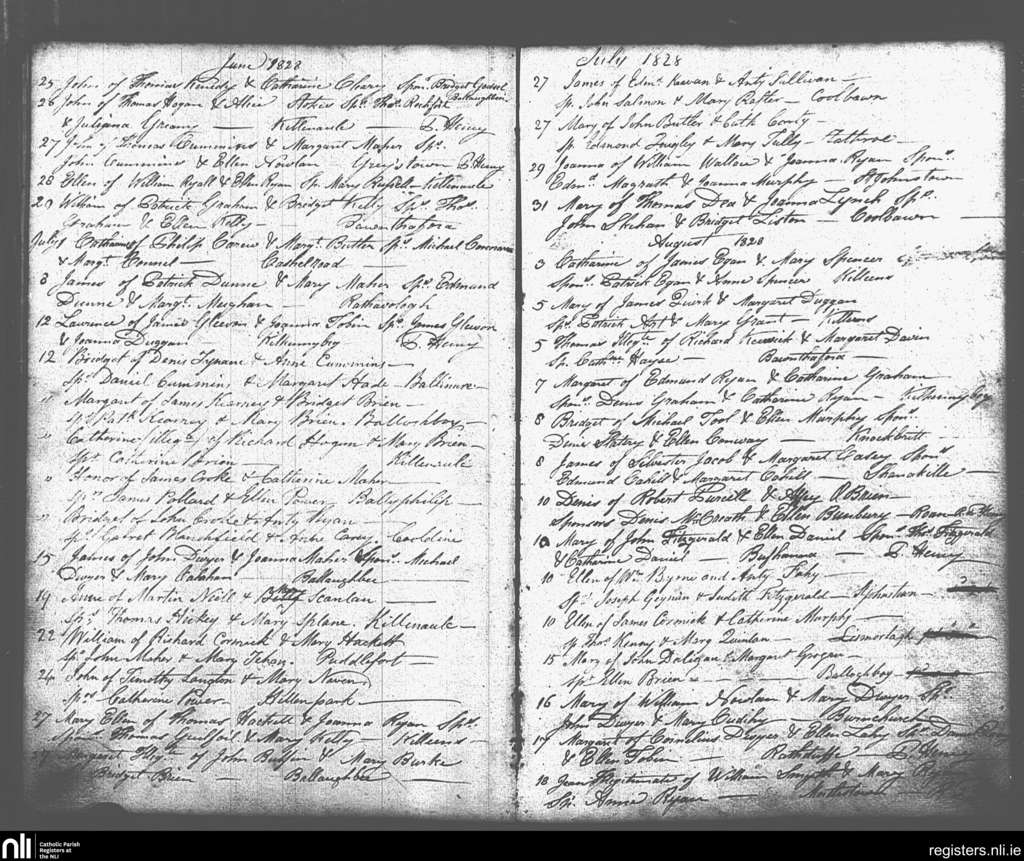 June 1828
25 John of Thomas Kennedy & Catharine Cleary Spon. Bridget
26 John of Thomas Hogan & Alice Stokes Sps. Thos. Rochfort Ballaughbee
& Juliana Greany — Killenaule — P. Heney
27 John of Thomas Cummins & Margaret Maher Sps.
John Cummins & Ellen Nowlan Greystown P. Heney
28 Ellen of William Ryall & Ellen Ryan Sp. Mary Russell — Killenaule
29 William of Patrick Graham & Bridget Kelly Sps. Thos.
Graham & Ellen Kelly — Bawnthafora
July 1 Catharine of Philip Carew & Margt. Butler Sps. Michael
& Margt. — Cashel Road —
8 James of Patrick Dunne & Mary Maher Sps. Edmund
Dunne & Margt. Meighan —
12 Lawrence of James Gleeson & Joanna Tobin Sps. James Gleeson
& Joanna Duggan — — P. Heney
12 Bridget of Denis & Anne Cummins —
Sps. Daniel Cummins & Margaret Hade —
" Margaret of James Kearney & Bridget Brien —
Sps. Patk. Kearney & Mary Brien.
" Catherine Illeg. of Richard Hogan & Mary Brien —
Sp. Catherine — Killenaule
" Honor of James Cooke & Catherine Maher —
Sps. James Pollard & Ellen Power Ballyphilip —
" Bridget of John & Anty Ryan —
Sps. Garret Blanchfield & Carey. Cooldine
15 James of John Dwyer & Joanna Maher Spons. Michael
Dwyer & Mary Calahan — Ballaughbee —
19 Anne of Martin Neill & Mary Scanlan —
Sps. Thomas Hickey & Mary. Killenaule —
22 William of Richard Cormick & Mary Hackett
Sps. John Maher & Mary. —
24 John of Timothy Langton & Mary
Sps. Catherine Power Hillenpark —
27 Mary Ellen of Thomas Hackett & Joanna Ryan Sps.
Thomas Guilfoil & Mary Kelly — Killeens —
Margaret Illegt. of John & Mary Burke
Bridget Brien — Ballaughbee —
July 1828
27 James of Edmd. & Anty Sullivan —
Sp. John Salmon & Mary Rafter — Coolbawn
27 Mary of John Butler & Cath —
Sp. Edmond & Mary Tully —
29 Joanna of William Wallace & Joanna Ryan Spons.
Edmd. Magrath & Joanna Murphy — St Johnstown
31 Mary of Thomas Dea & Joanna Lynch Sps.
John Skehan & Bridget Liston — Coolbawn —
August 1828
3 Catharine of James Egan & Mary Spencer
Spons. Patrick Egan & Anne Spencer Killeens
5 Mary of James Quirk & Margaret Duggan
Sps. Patrick & Mary Grant — Killeens
5 Thomas Illegt. of Richard & Margaret Davin
Sp. Cathne. Hayse — Bawnthafora —
7 Margaret of Edmund Ryan & Catharine Graham
Spons. Denis Graham & Catherine Ryan —
8 Bridget of Michael Tool & Ellen Murphy Spons.
Denis Slatery & Ellen Conway — Knockbritt —
8 James of Silvester Jacob & Margaret Casey Spons.
Edmund Cahill & Margaret Cahill —
10 Denis of Robert Purcell & O'Brien
Sponsors Denis McCreath & Ellen Bunbury —
10 Mary of John Fitzgerald & Ellen Daniel Spons. Thos. Fitzgerald
& Catherine Daniel — — P. Heney
10 Ellen of Wm. Byrne and Anty Fahy —
Sps. Joseph & Judith Fitzgerald —
10 Ellen of James Cormick & Catherine Murphy —
Sp. Thos. Kenny & Mary Quinlan —
15 Mary of John & Margaret Grogan —
Sps. Ellen Brien — Ballaghboy —
16 Mary of William Nowlan & Mary Dwyer Sps.
John Dwyer & Mary Cuddihy — Burnchurch
17 Margaret of Cornelius Dwyer & Ellen Lahy Sps.
& Ellen Tobin — — P. Heney
18 Jean Illegitimate of William Smyth & Mary Ryan
Sp. Anna Ryan —
nli Catholic Parish
Registers at
the NLI
registers.nli.ie